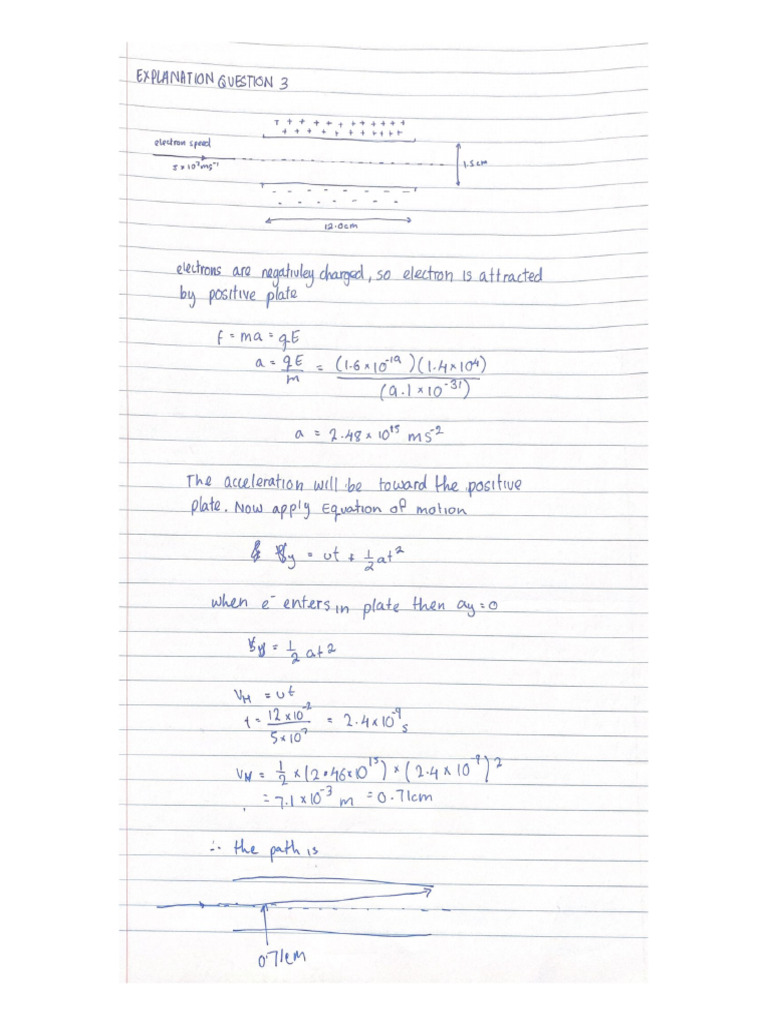 EXPLANATION QUESTION 3
+ + + + + + + + + + +
+ + + + + + + + + +
electron speed
5 × 10⁷ ms⁻¹
1.5cm
- - - - - - -
- - - - - -
12.0cm
electrons are negativley charged, so electron is attracted
by positive plate
f = ma = qE
a = qE/m = (1.6 × 10⁻¹⁹)(1.4 × 10⁴)/(9.1 × 10⁻³¹)
a = 2.48 × 10¹⁵ ms⁻²
The acceleration will be toward the positive
plate. Now apply Equation of motion
y = ut + 1/2 at²
when e⁻ enters in plate then ay = 0
y = 1/2 at²
VH = ut
t = 12 × 10⁻²/5 × 10⁷ = 2.4 × 10⁻⁹ s
VN = 1/2 × (2.46 × 10¹⁵) × (2.4 × 10⁻⁹)²
= 7.1 × 10⁻³ m = 0.71cm
∴ the path is
0.71cm